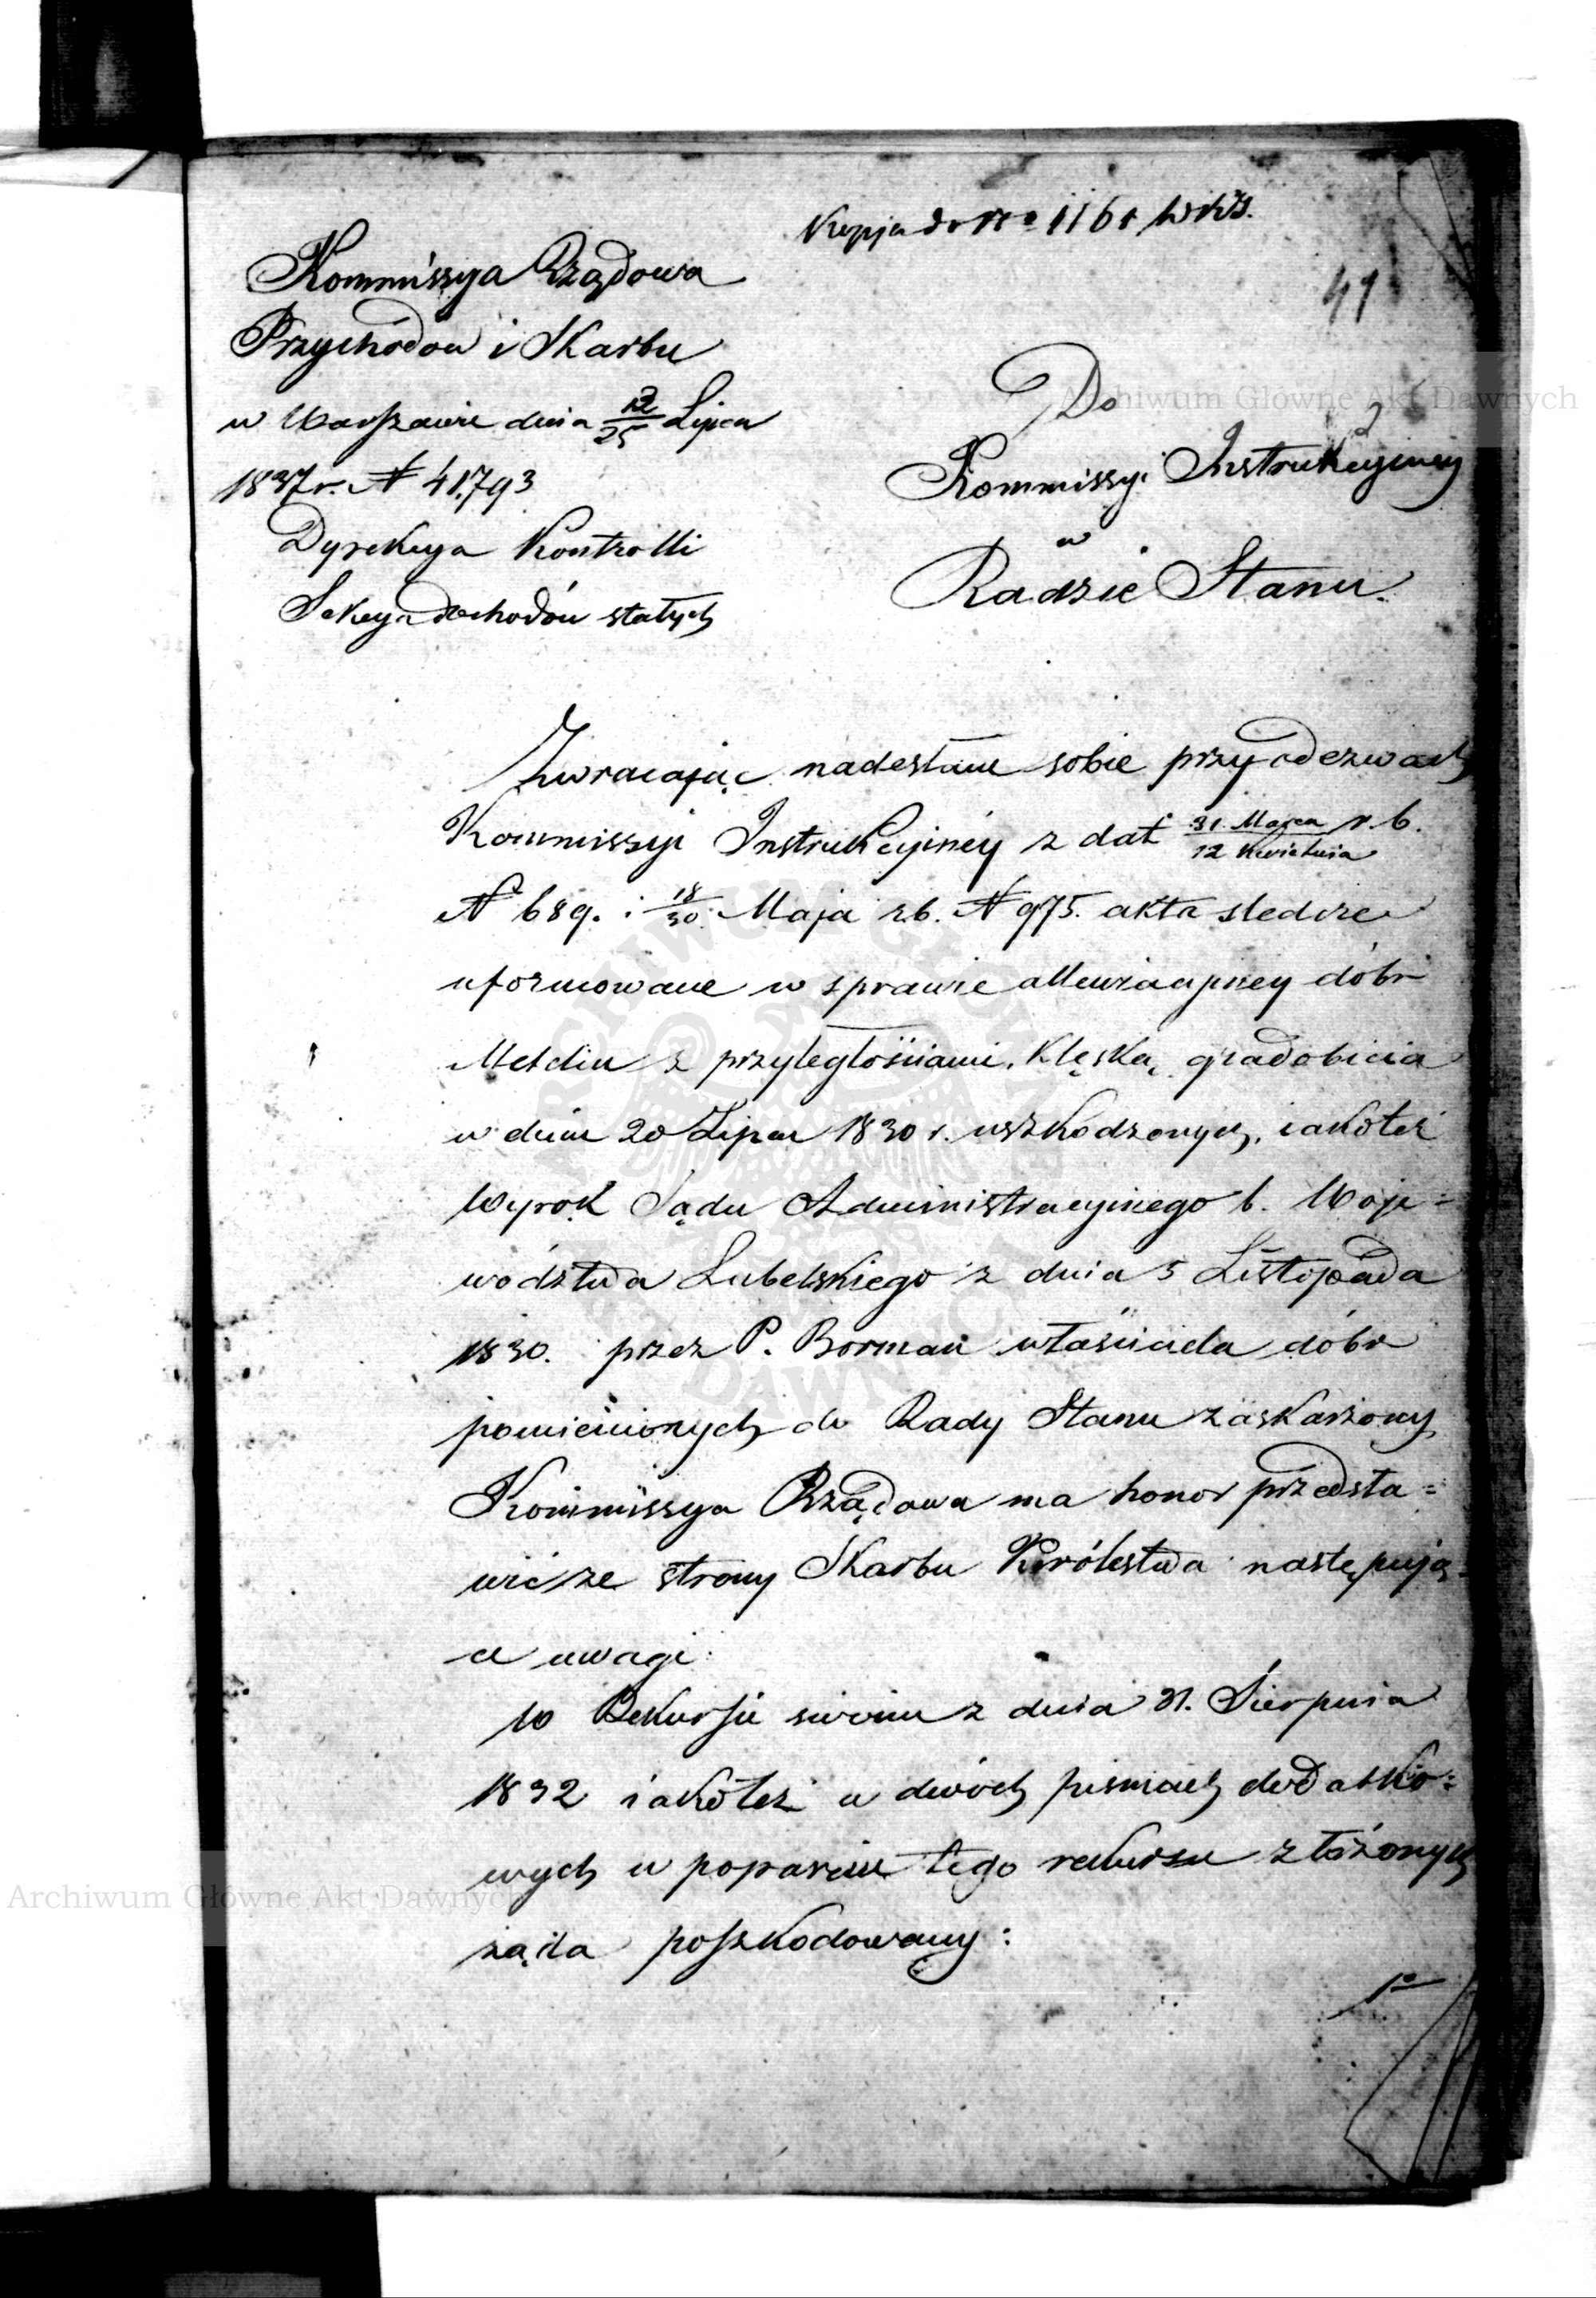 Kopja do Nro 1161
41
Kommissya Rządowa
Przychodów i Skarbu
w Warszawie dnia 13/25 Lipca
1837 r. N 41,793
Dyrekcya Kontrolli
Sekcya dochodów stałych
Do
Kommissyi Instrukcyiney
w
Radzie Stanu.
Zwracając nadesłane sobie przy odezwach
Kommissyi Instrukcyiney z dat 31 Marca/12 Kwietnia r. b.
N 689. i 18/30 Maja r. b. N 975. akta śledcze
uformowane w sprawie allewiacyiney dóbr
z przyległościami, klęską gradobicia
w dniu 20 Lipca 1830 r. uszkodzonych, iakoteż
Wyrok Sądu Administracyinego b. Woje=
wództwa Lubelskiego z dnia 5 Listopada
1830. przez P. Borman właściciela dóbr
pomienionych do Rady Stanu zaskarżony,
Kommissya Rządowa ma honor przedsta=
wić ze strony Skarbu Królestwa następują=
ce uwagi:
W Rekursie swoim z dnia 31. Sierpnia
1832 iakoteż w dwóch pismach dodatko=
wych w poparciu tego rekursu złożonych
żąda poszkodowany:
1o
Archiwum Główne Akt Dawnych
ARCHIWUM GŁÓWNE AKT DAWNYCH
Archiwum Główne Akt Dawnych